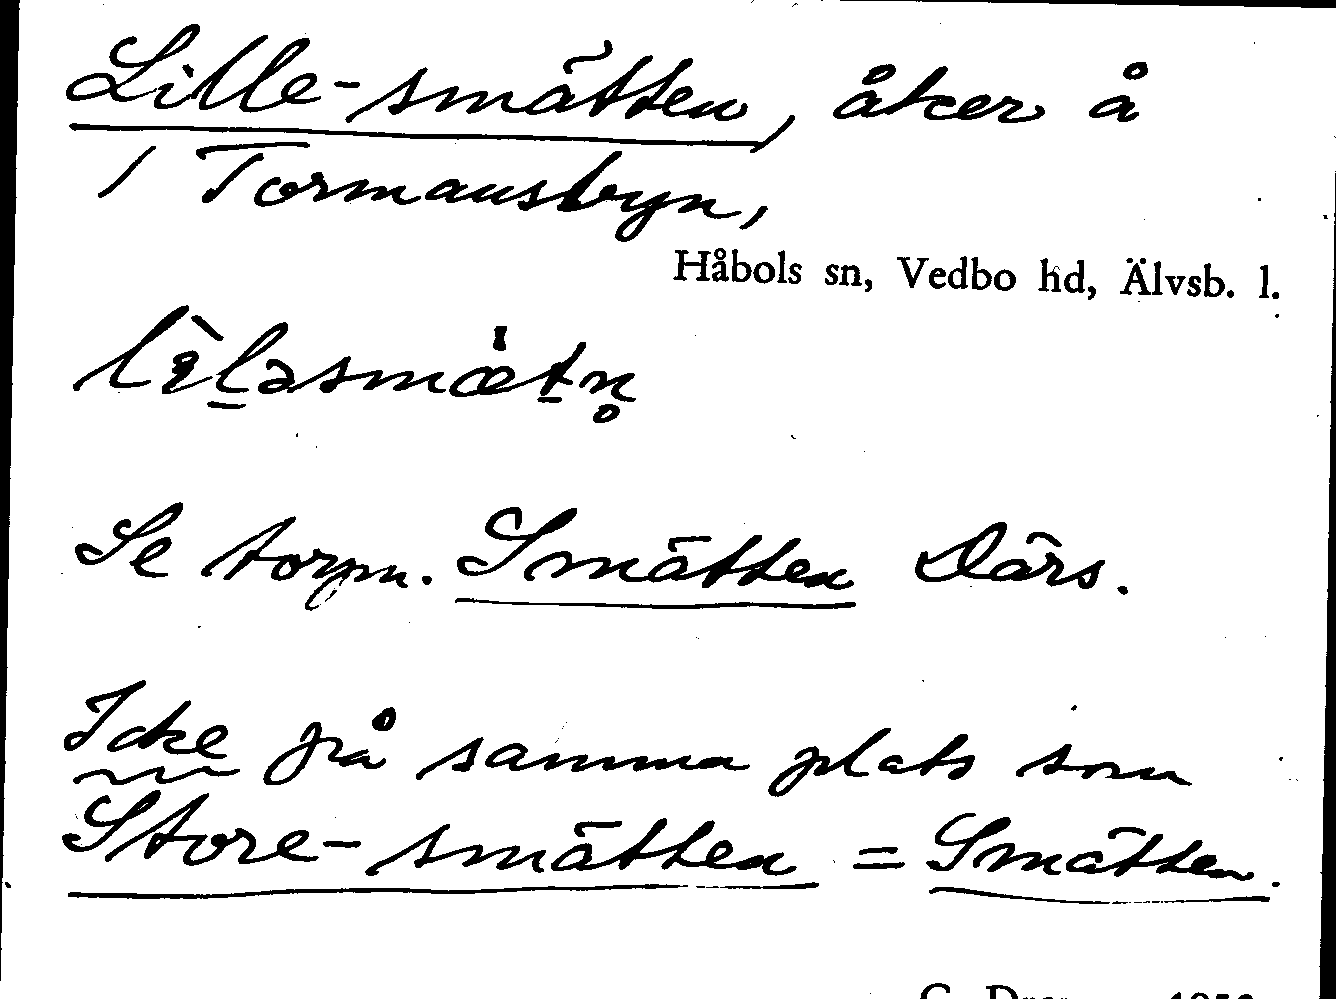 Lille-smätten, åker å
/ Tormansbyn,
Håbols sn, Vedbo hd, Älvsb. l.
Se torpn. Smätten Därs.
Icke på samma plats som
Store-smätten = Smätten.